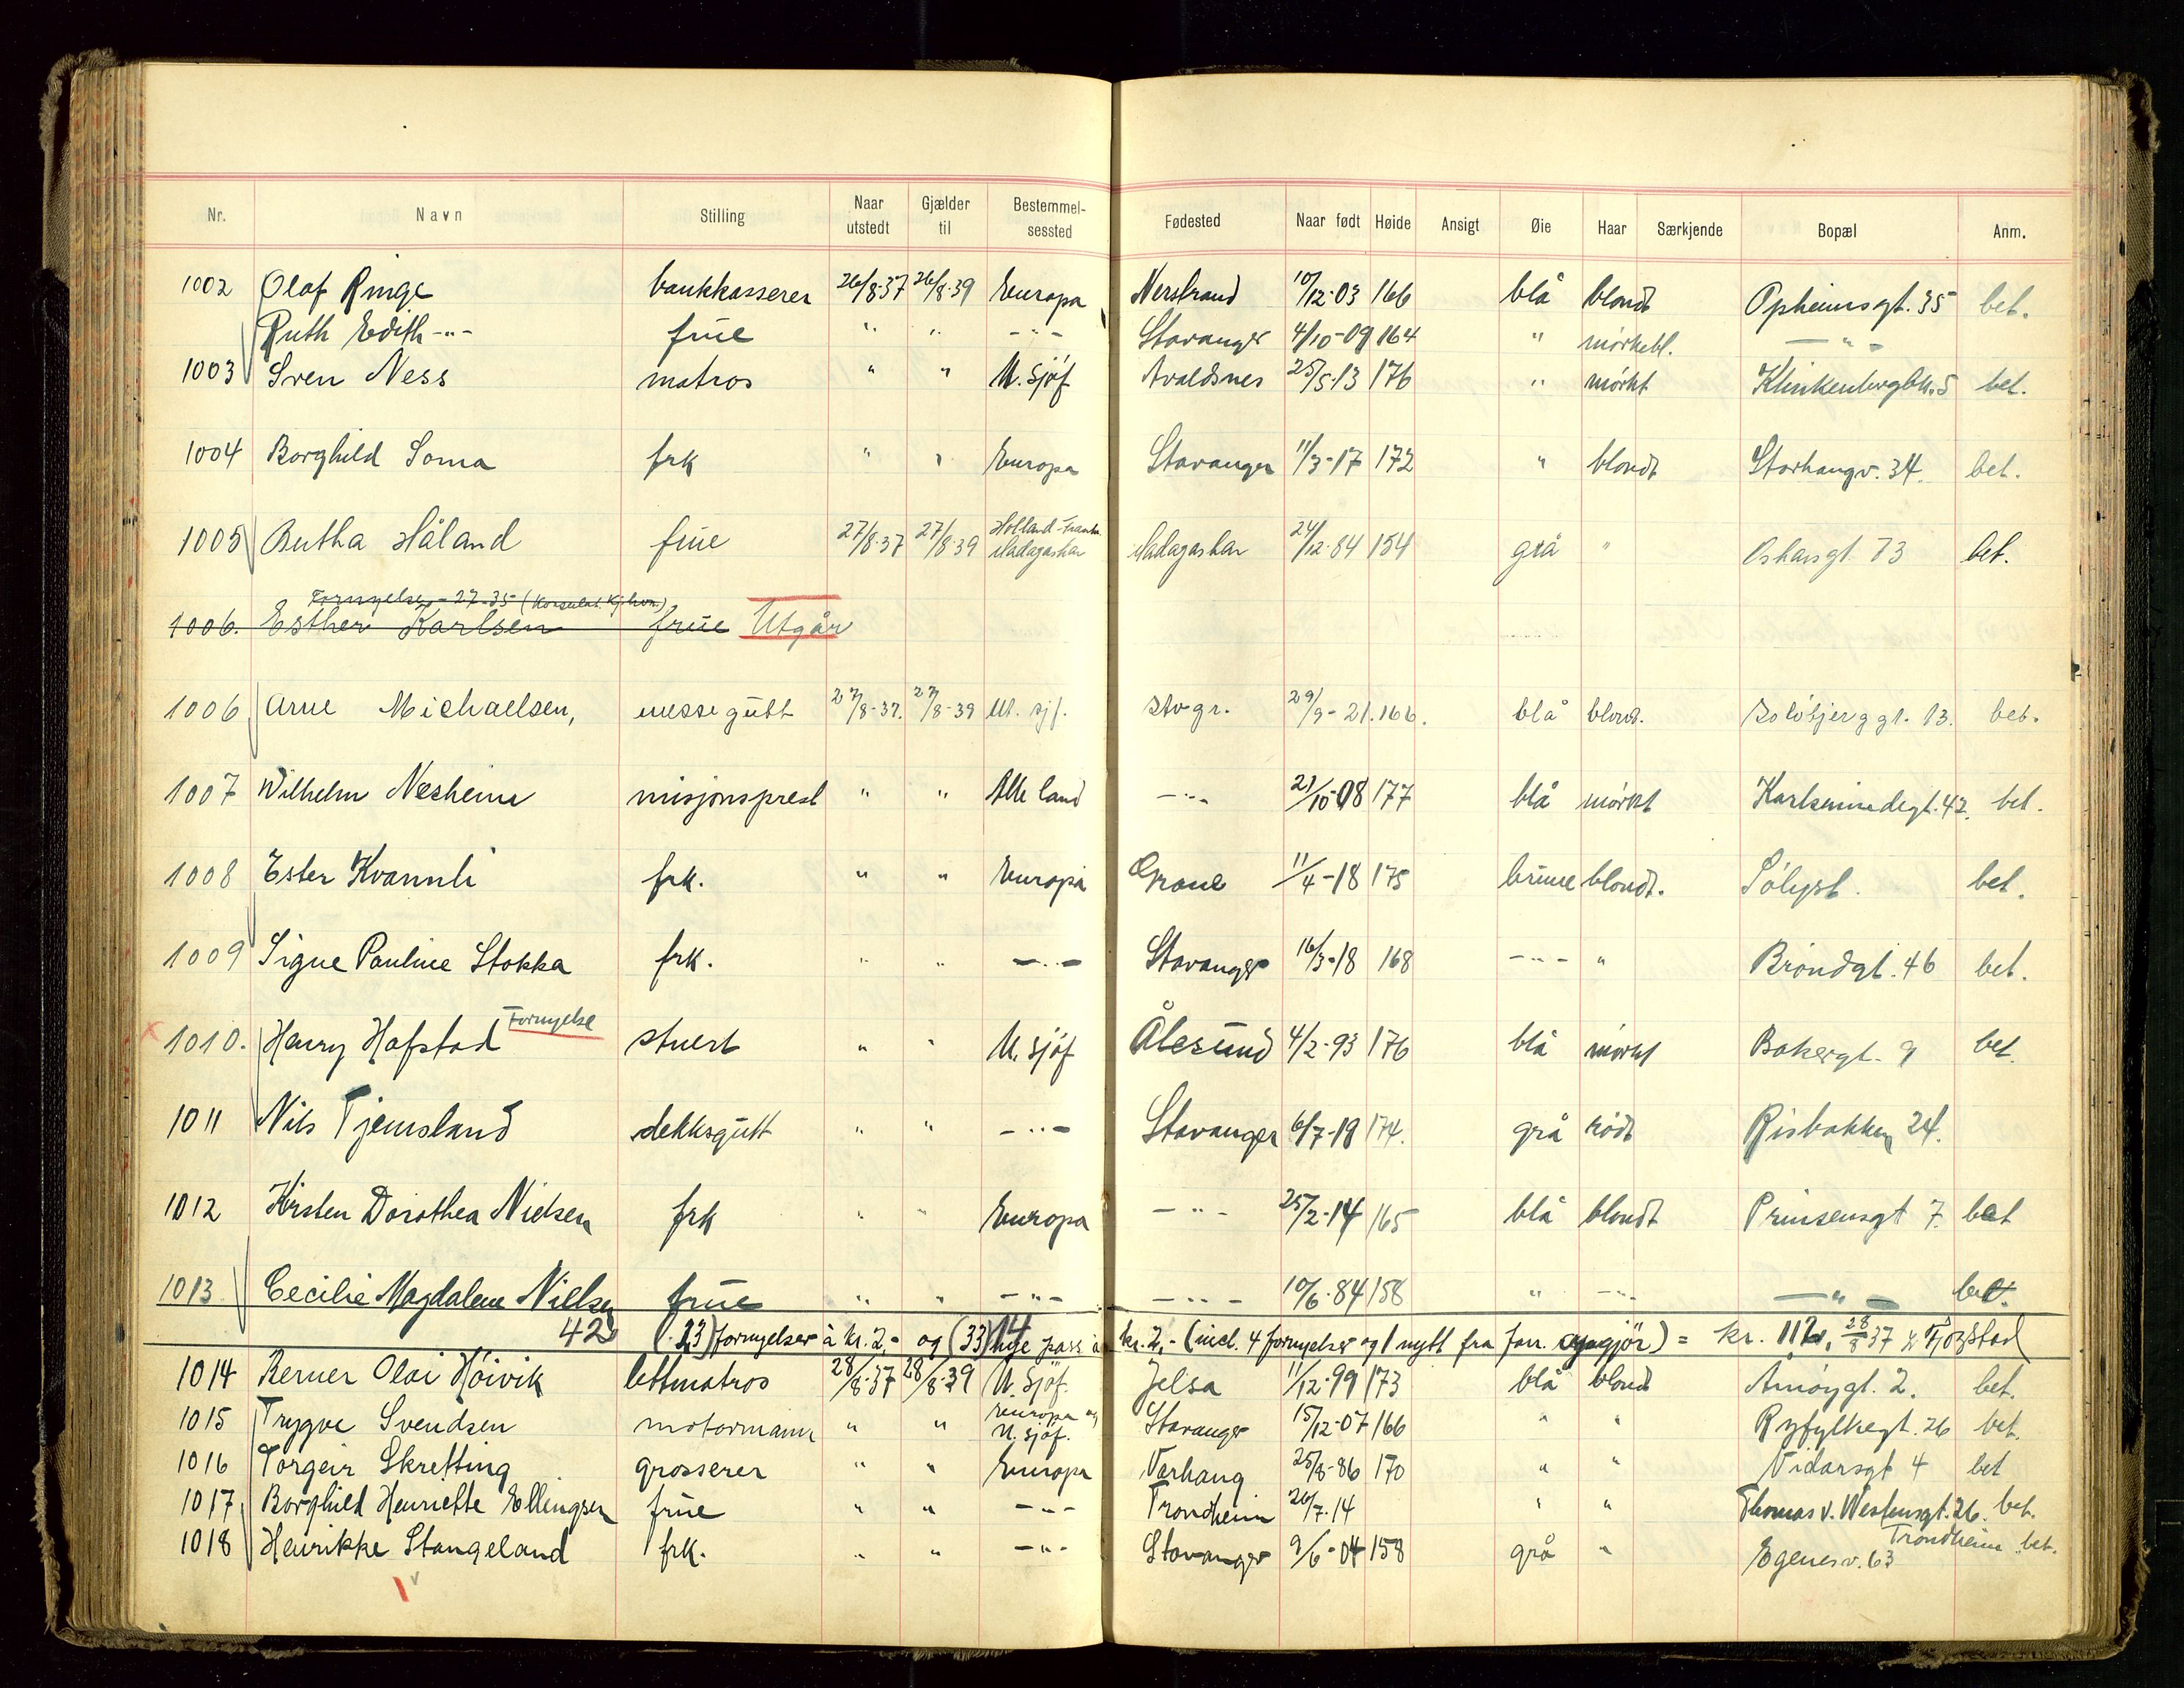 Nr. Navn Stilling Naar utstedt Gjælder til Bestemmel-sessted Fødested Naar født Høide Ansigt Øie Haar Særkjende Bopæl Anm.
1002 Olaf Ringe bankkasserer 26/8-37 26/8-39 Europa Nerstrand 10/12-03 166 blå blondt Opheimsgt. 35 bet.
Ruth Edith -"- frue " " -"- Stavanger 4/10-09 164 " mørkebl. -"-
1003 Sven Ness matros " " U. sjøf Avaldsnes 25/5-13 176 " mørkt Klinkenbergbk. 5 bet.
1004 Borghild Soma frk " " Europa Stavanger 11/3-17 172 " blondt Storhaugv. 34. bet.
1005 Bertha Håland frue 27/8-37 27/8-39 Holland-Frankr. Madagaskar Madagaskar 24/12-84 154 grå " Oskarsgt. 73 bet.
Fornyelse - 27-35 (Konsulat. Kjhvn)
1006. Esther Karlsen frue Utgår
1006 Arne Michaelsen, messegutt 27/8-37. 27/8-39 Ut. sjf. Stvgr. 29/9-21. 166. blå blond. Solvbjerggt. 13. bet.
1007 Wilhelm Nesheim misjonsprest " " Alle land -"- 21/10-08 177 blå mørkt Karlsminnedegt. 42. bet.
1008 Ester Kvannli frk. " " Europa Grane 11/4-18 175 brune blondt. Sólyst. bet.
1009 Signe Pauline Stokka frk. " " -"- Stavanger 16/3-18 168 -"- " Brøndgt. 46 bet.
1010. Henry Hafstad Fornyelse stuert " " U. sjøf Ålesund 4/2-93 176 blå mørkt Bakergt. 9 bet.
1011 Nils Tjemsland dekksgutt " " -"- Stavanger 6/7-19 174. grå rødt Risbakken 24.
1012 Kirsten Dorothea Nielsen frk " " Europa -"- 25/2-14 165 blå blondt Prinsensgt 7. bet
1013 Cecilie Magdalene Nielsen frue " " -"- -"- 10/6-84 158 " -"- -"- bet.
42 (23) fornyelser à kr. 2,- og (33) 14 nye pass à kr. 2,- (incl. 4 fornyelser og 1 nytt fra forr. opgjør) = kr. 112,. 28/8 37
1014 Berner Olai Høivik lettmatros 28/8-37 28/8-39 U. sjøf. Jelsa 11/12-99 173 blå blond Amøygt. 2. bet.
1015 Trygve Svendsen motormann " " Europa og U. sjøf. Stavanger 15/12-07 166 " " Ryfylkegt. 26 bet.
1016 Torgeir Skretting grosserer " " Europa Varhaug 25/8-86 170 " " Vidarsgt 4 bet
1017 Borghild Henriette Ellingsen frue " " -"- Trondheim 26/7-14 " " Thomas v. Westensgt. 26. Trondheim bet.
1018 Henrikke Stangeland frk. " " -"- Stavanger 9/6-04 158 grå " Egenesv. 63 bet.